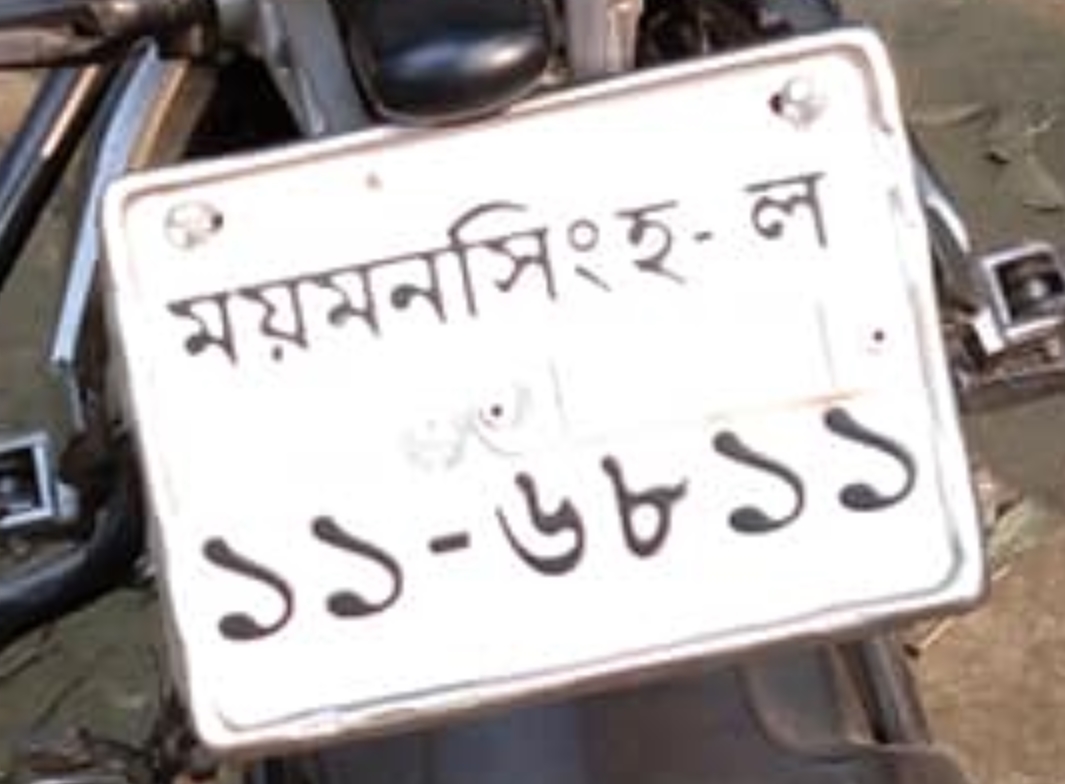 ময়মনসিংহ- ল
১১-৬৮১১